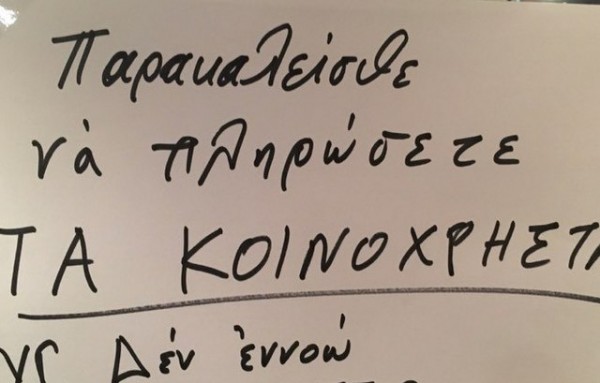 Παρακαλείσθε
νὰ πληρώσετε
ΤΑ ΚΟΙΝΟΧΡΗΣΤΑ
Δέν ἐννοώ